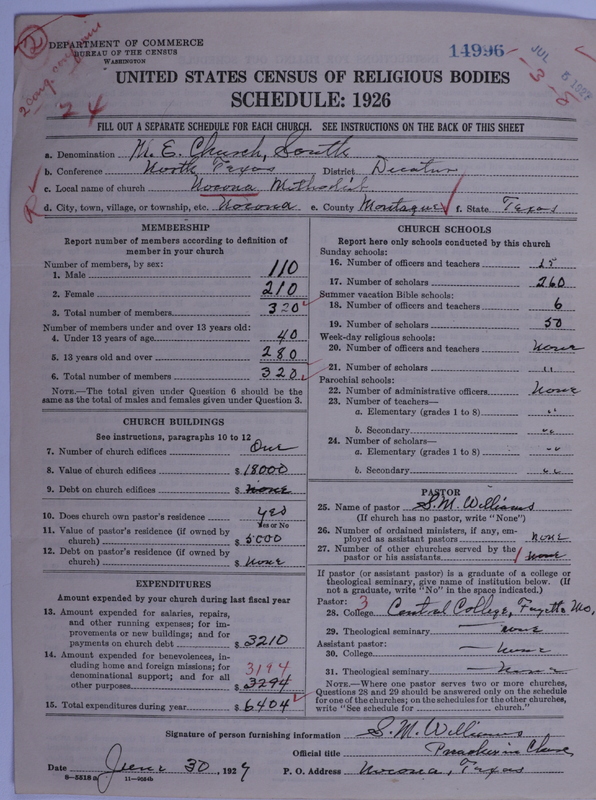 DEPARTMENT OF COMMERCE
BUREAU OF THE CENSUS
WASHINGTON
14996
JUL 5 1927
3-8
24
UNITED STATES CENSUS OF RELIGIOUS BODIES
SCHEDULE: 1926
FILL OUT A SEPARATE SCHEDULE FOR EACH CHURCH. SEE INSTRUCTIONS ON THE BACK OF THIS SHEET
a. Denomination M. E. Church, South
b. Conference North Texas District Decatur
c. Local name of church Nocona Methodist
d. City, town, village, or township, etc. Nocona e. County Montague f. State Texas
MEMBERSHIP
Report number of members according to definition of
member in your church
Number of members, by sex:
1. Male 110
2. Female 210
3. Total number of members 320
Number of members under and over 13 years old:
4. Under 13 years of age 40
5. 13 years old and over 280
6. Total number of members 320
NOTE.—The total given under Question 6 should be the
same as the total of males and females given under Question 3.
CHURCH BUILDINGS
See instructions, paragraphs 10 to 12
7. Number of church edifices One
8. Value of church edifices $ 18000
9. Debt on church edifices $ none
10. Does church own pastor's residence yes
Yes or No
11. Value of pastor's residence (if owned by
church) $ 5000
12. Debt on pastor's residence (if owned by
church) $ None
EXPENDITURES
Amount expended by your church during last fiscal year
13. Amount expended for salaries, repairs,
and other running expenses; for im-
provements or new buildings; and for
payments on church debt $ 3210
14. Amount expended for benevolences, in-
cluding home and foreign missions; for
denominational support; and for all
other purposes 3194
$ 3294
15. Total expenditures during year $ 6404
CHURCH SCHOOLS
Report here only schools conducted by this church
Sunday schools:
16. Number of officers and teachers
17. Number of scholars 260
Summer vacation Bible schools:
18. Number of officers and teachers 6
19. Number of scholars 50
Week-day religious schools:
20. Number of officers and teachers None
21. Number of scholars "
Parochial schools:
22. Number of administrative officers None
23. Number of teachers—
a. Elementary (grades 1 to 8) "
b. Secondary "
24. Number of scholars—
a. Elementary (grades 1 to 8) "
b. Secondary "
PASTOR
25. Name of pastor S. M. Williams
(If church has no pastor, write "None")
26. Number of ordained ministers, if any, em-
ployed as assistant pastors none
27. Number of other churches served by the
pastor or his assistants none
If pastor (or assistant pastor) is a graduate of a college or
theological seminary, give name of institution below. (If
not a graduate, write "No" in the space indicated.)
Pastor: 3
28. College Central College, Fayette Mo,
29. Theological seminary none
Assistant pastor:
30. College — None
31. Theological seminary — None
NOTE.—Where one pastor serves two or more churches,
Questions 28 and 29 should be answered only on the schedule
for one of the churches; on the schedules for the other churches,
write "See schedule for church."
Signature of person furnishing information S. M. Williams
Official title Preacher in Charge
Date June 30, 1927 P. O. Address Nocona, Texas
8—5518a 11—9034b